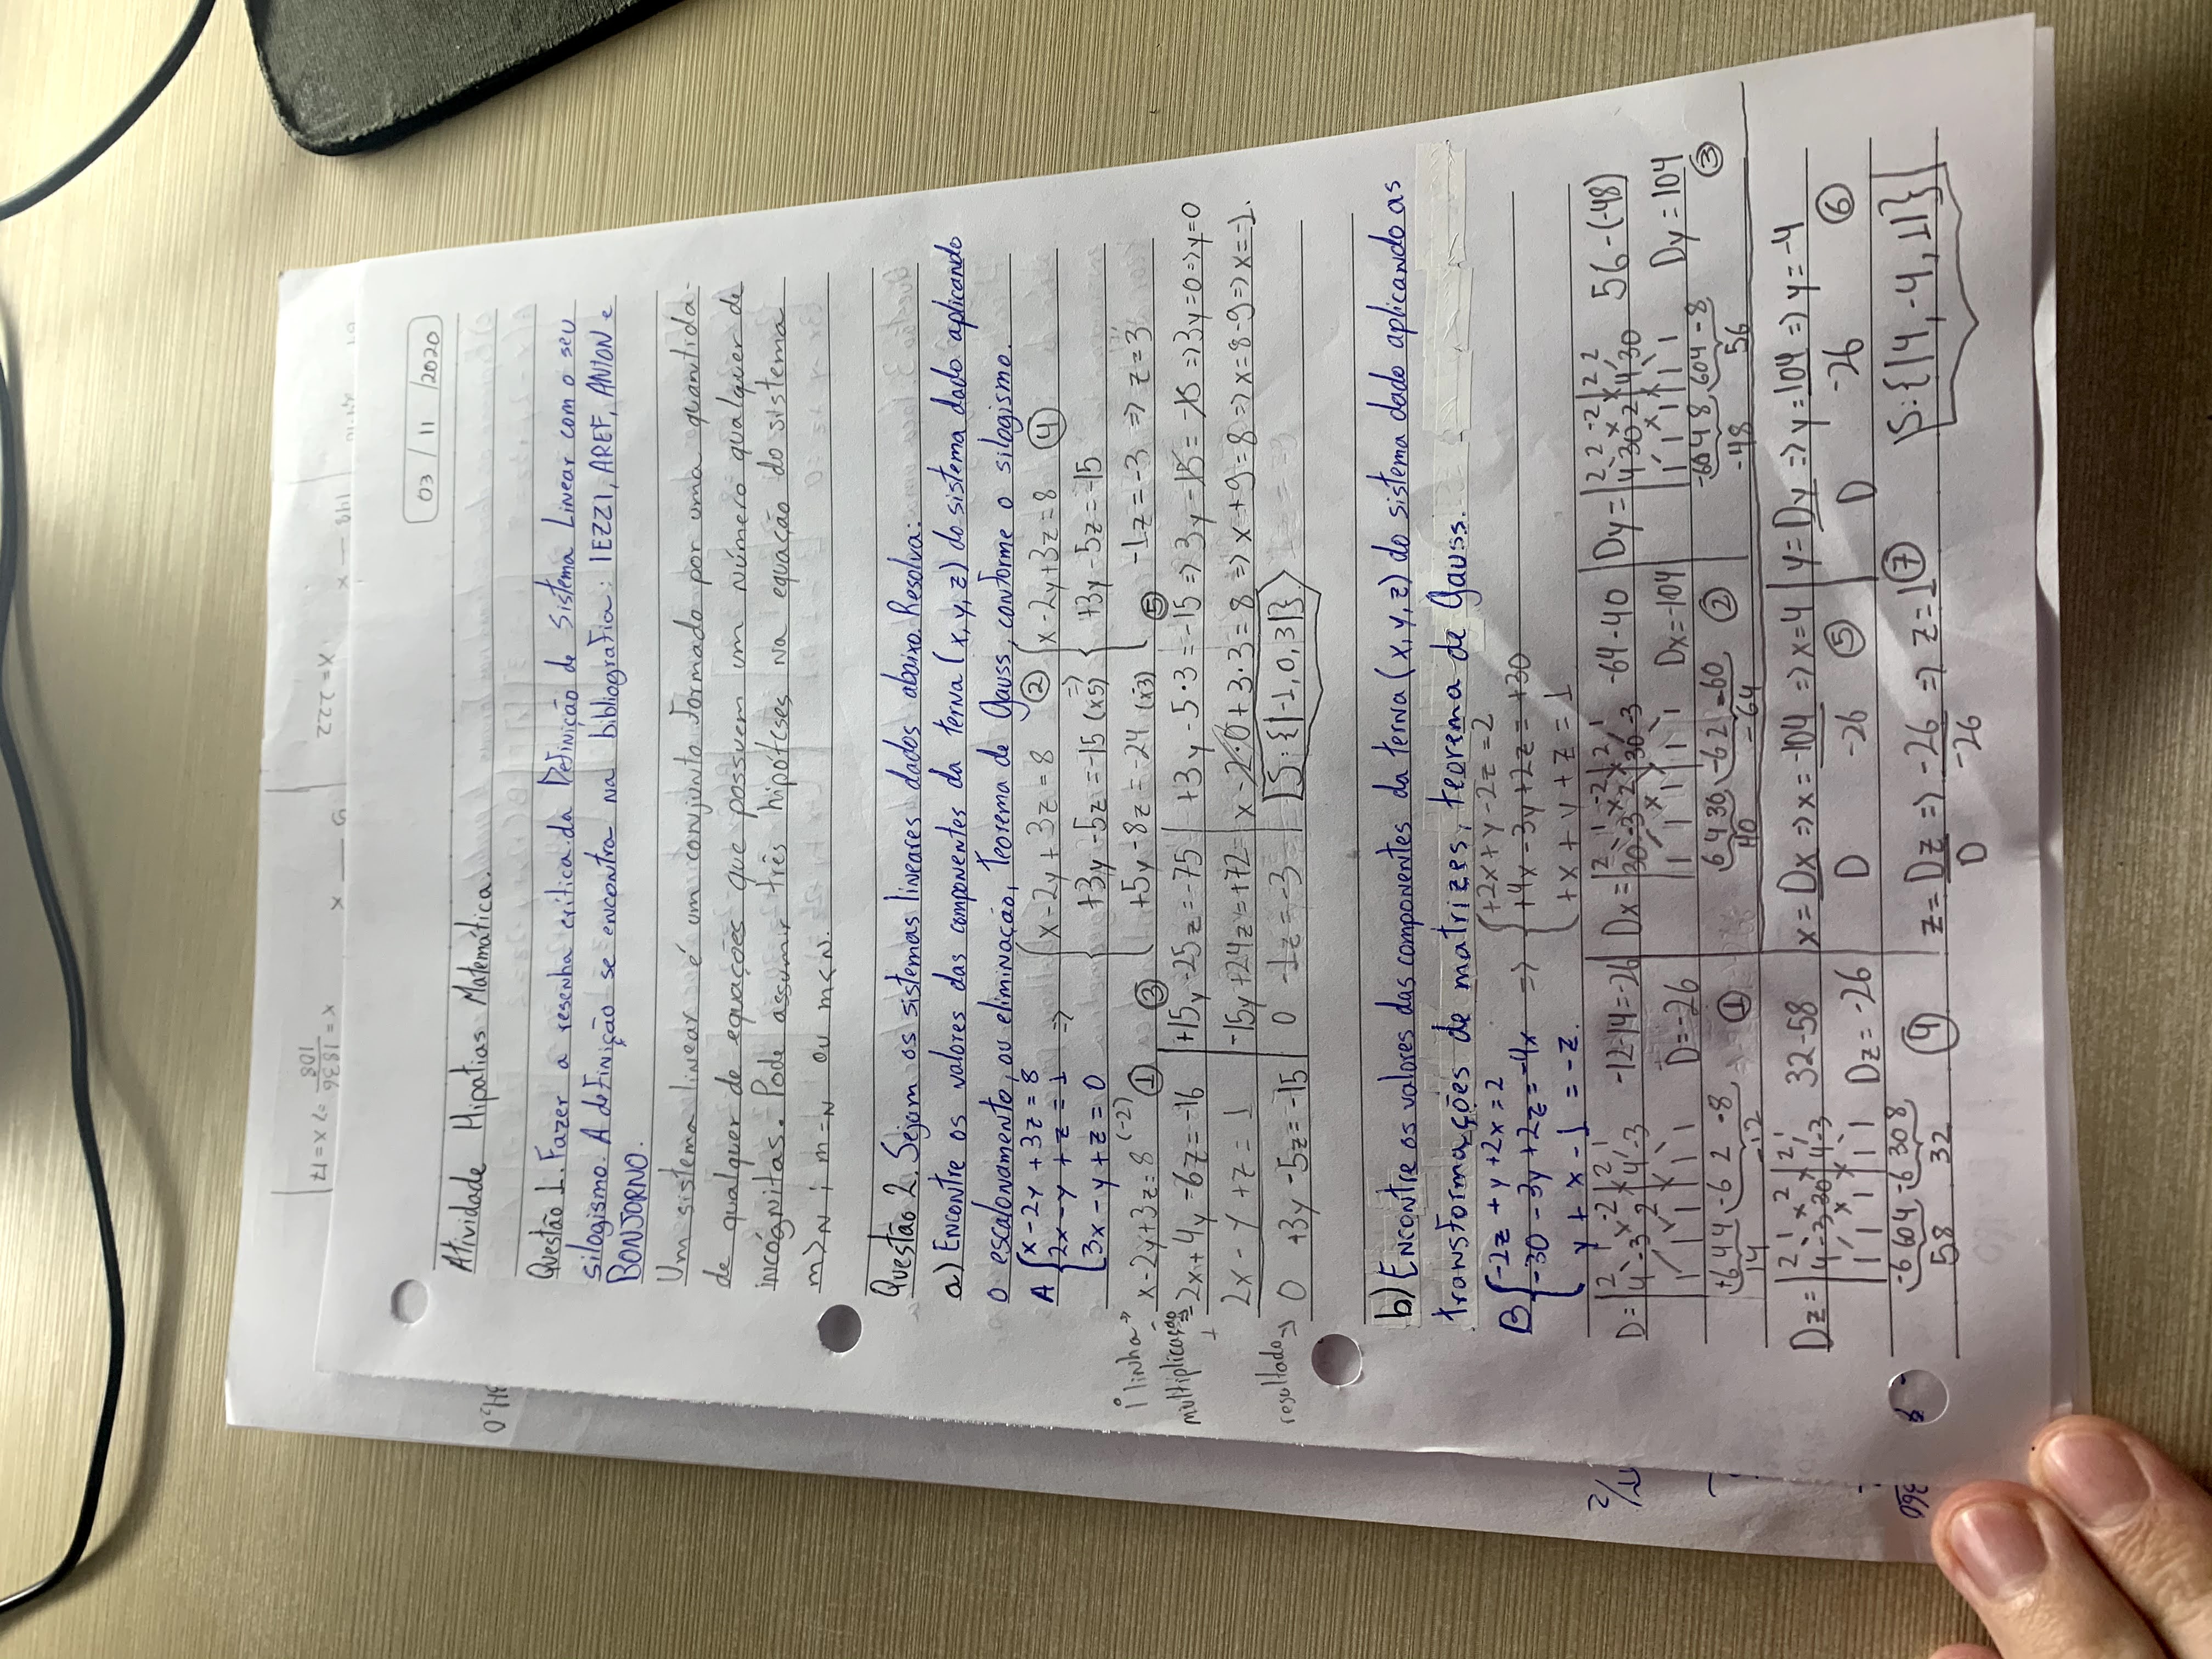 x = 1836 => x = 17
108
x = 222
03 / 11 / 2020
Atividade Hipatias Matemática.
Questão 1. Fazer a resenha crítica da Definição de Sistema Linear com o seu
silogismo. A definição se encontra na bibliografia: IEZZI, AREF, ANTON e
BONJORNO.
Um sistema linear é um conjunto formado por uma quantida-
de qualquer de equações que possuem um número qualquer de
incógnitas. Pode assumir três hipóteses na equação do sistema
m>n ; m=n ou m<n.
Questão 2. Sejam os sistemas lineares dados abaixo. Resolva:
a) Encontre os valores das componentes da terna (x, y, z) do sistema dado aplicando
o escalonamento, ou eliminação, teorema de Gauss, conforme o silogismo.
A { x - 2y + 3z = 8
2x - y + z = 1 =>
3x - y + z = 0
x - 2y + 3z = 8 ②
+3y - 5z = -15 (x5) =>
③ +5y - 8z = -24 (x-3)
x - 2y + 3z = 8 ④
+3y - 5z = -15
⑤ -1z = -3 => z = 3
1 linha → x - 2y + 3z = 8 (-2) ①
multiplicação → -2x + 4y - 6z = -16
+
2x - y + z = 1
resultado → 0 +3y - 5z = -15
+15y - 25z = -75
-15y + 24z = +72
0 -1z = -3
+3y - 5·3 = -15 => 3y - 15 = -15 => 3y = 0 => y = 0
x - 2·0 + 3·3 = 8 => x + 9 = 8 => x = 8 - 9 => x = -1.
S: {|-1, 0, 3|}
b) Encontre os valores das componentes da terna (x, y, z) do sistema dado aplicando as
transformações de matrizes, teorema de Gauss.
B { -2z + y + 2x = 2
-30 - 3y + 2z = -4x =>
y + x - 1 = -z.
+2x + y - 2z = 2
+4x - 3y + 2z = +30
+x + y + z = 1
D = | 2 1 -2 | 2 1
4 -3 2 | 4 -3
1 1 1 | 1 1
-12-14 = -26
D = -26
+6 4 4 -6 2 -8
14 -12 ①
Dx = | 2 1 -2 | 2 1
30 -3 2 | 30 -3
1 1 1 | 1 1
-64-40
Dx = -104
6 4 30 -6 2 -60
40 -64 ②
Dy = | 2 2 -2 | 2 2
4 30 2 | 4 30
1 1 1 | 1 1
56 - (-48)
Dy = 104
-60 4 8 60 4 -8
-48 56 ③
Dz = | 2 1 2 | 2 1
4 -3 30 | 4 -3
1 1 1 | 1 1
32-58
Dz = -26
-6 60 4 -6 30 8
58 32 ④
x = Dx => x = -104 => x = 4
D -26 ⑤
y = Dy => y = 104 => y = -4
D -26 ⑥
z = Dz => -26 => z = 1 ⑦
D -26
S: {|4, -4, 1|}